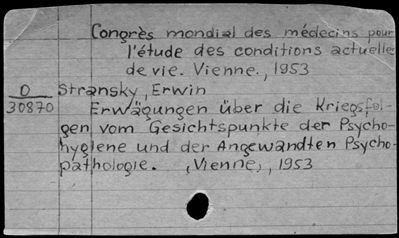 Congrès mondial des médecins pour
l'étude des conditions actuelle
de vie. Vienne., 1953
O
30870
Stransky, Erwin
Erwägungen über die Kriegsfol-
gen vom Gesichtspunkte der Psycho-
hygiene und der Angewandten Psycho-
pathologie. , Vienne, , 1953